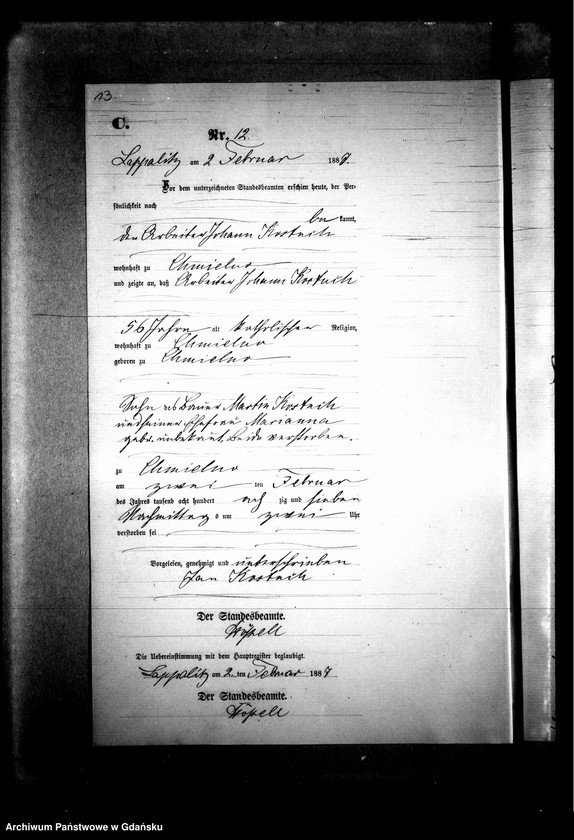 13
C.
Nr. 12.
Lappalitz am 2 Februar 1887.
Vor dem unterzeichneten Standesbeamten erschien heute, der Per-
sönlichkeit nach
be kannt,
den Arbeiter Johann Kostuch
wohnhaft zu Chmielno
und zeigte an, daß Arbeiter Johann Kostuch
56 Jahre alt katholischer Religion,
wohnhaft zu Chmielno
geboren zu Chmielno
Sohn des Bauer Martin Kostuch
und seiner Ehefrau Marianna
geb. unbekannt, beide verstorben.
zu Chmielno
am zwei ten Februar
des Jahres tausend acht hundert acht zig und sieben
Nachmittag s um zwei Uhr
verstorben sei
Vorgelesen, genehmigt und unterschrieben
Jan Kostuch
Der Standesbeamte.
Die Uebereinstimmung mit dem Hauptregister beglaubigt.
Lappalitz am 2. ten Februar 1887
Der Standesbeamte.
Archiwum Państwowe w Gdańsku